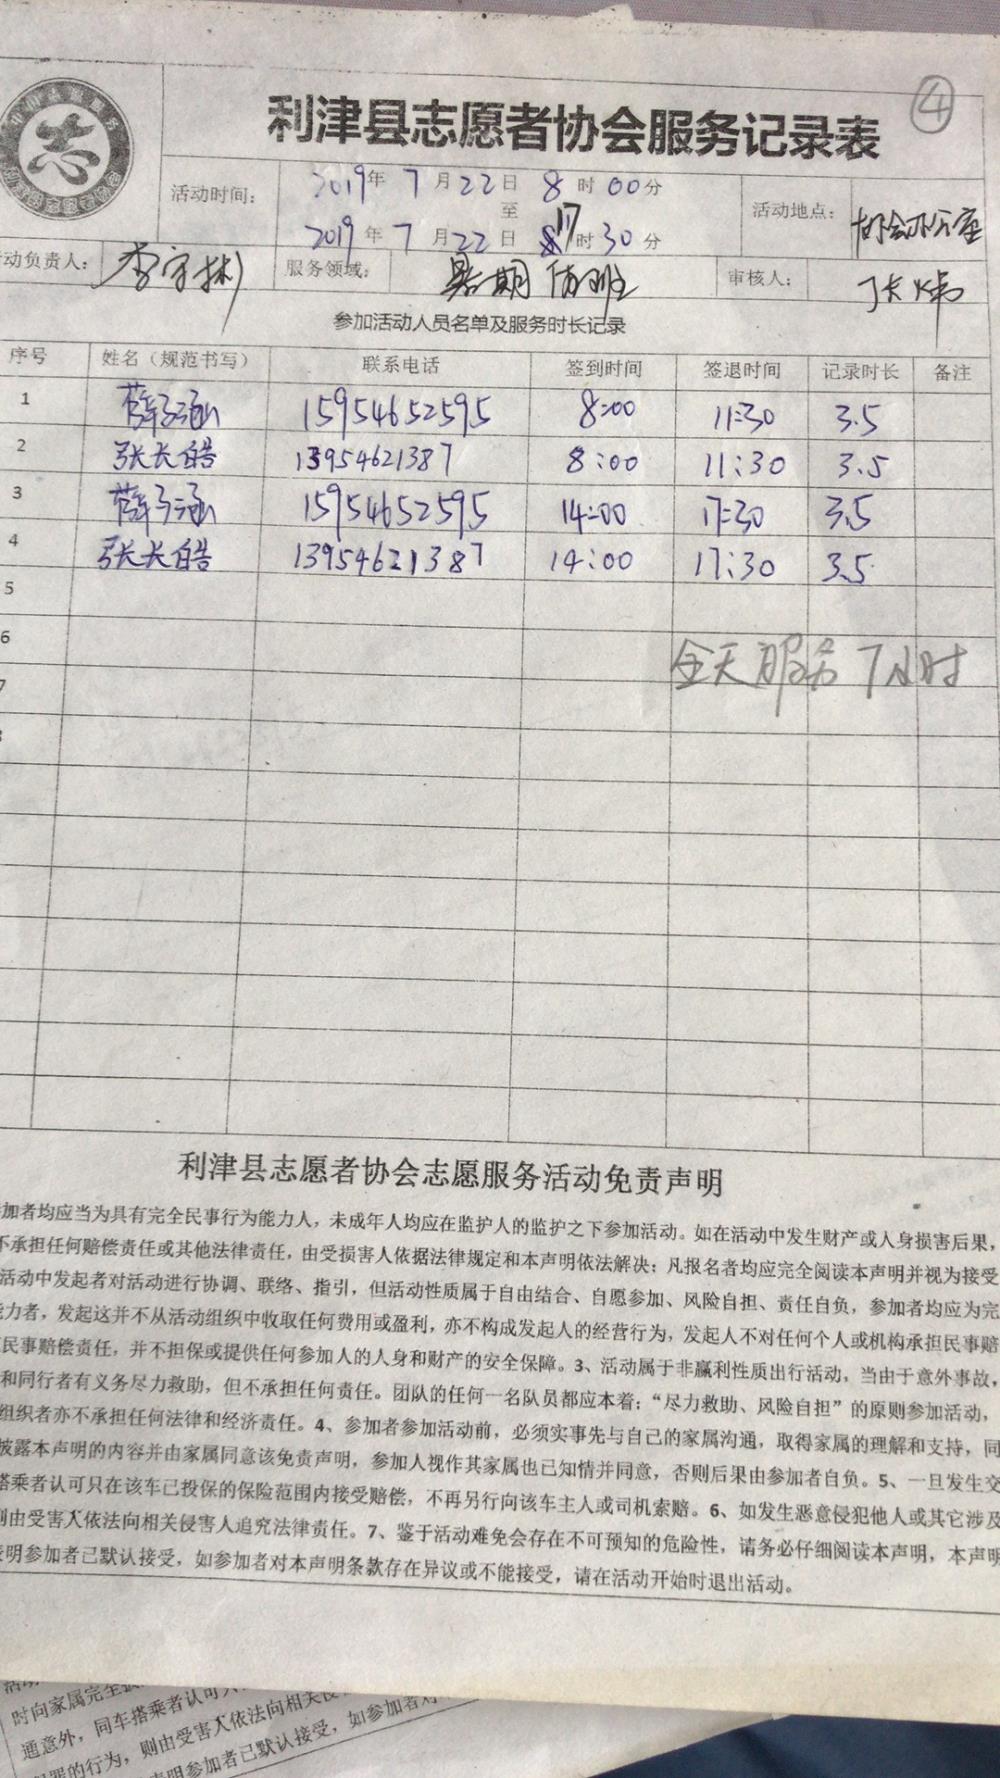 ④
利津县志愿者协会服务记录表
活动时间：
2019年 7 月 22 日 8 时 00 分
至
2019 年 7 月 22 日 17 时 30 分
活动地点：
协会办公室
动负责人：
李守彬
服务领域：
暑期
审核人：
张伟
参加活动人员名单及服务时长记录
序号 姓名（规范书写） 联系电话 签到时间 签退时间 记录时长 备注
1 薛子涵 15954652595 8:00 11:30 3.5
2 张长皓 13954621387 8:00 11:30 3.5
3 薛子涵 15954652595 14:00 17:30 3.5
4 张长皓 13954621387 14:00 17:30 3.5
5
6
全天服务7小时
7
利津县志愿者协会志愿服务活动免责声明
加者均应当为具有完全民事行为能力人，未成年人均应在监护人的监护之下参加活动。如在活动中发生财产或人身损害后果，
不承担任何赔偿责任或其他法律责任，由受损害人依据法律规定和本声明依法解决；凡报名者均应完全阅读本声明并视为接受
活动中发起者对活动进行协调、联络、指引，但活动性质属于自由结合、自愿参加、风险自担、责任自负，参加者均应为完
能力者，发起这并不从活动组织中收取任何费用或盈利，亦不构成发起人的经营行为，发起人不对任何个人或机构承担民事赔
民事赔偿责任，并不担保或提供任何参加人的人身和财产的安全保障。3、活动属于非赢利性质出行活动，当由于意外事故，
和同行者有义务尽力救助，但不承担任何责任。团队的任何一名队员都应本着：“尽力救助、风险自担”的原则参加活动，
组织者亦不承担任何法律和经济责任。4、参加者参加活动前，必须实事先与自己的家属沟通，取得家属的理解和支持，同
披露本声明的内容并由家属同意该免责声明，参加人视作其家属也已知情并同意，否则后果由参加者自负。5、一旦发生交
搭乘者认可只在该车已投保的保险范围内接受赔偿，不再另行向该车主人或司机索赔。6、如发生恶意侵犯他人或其它涉及
则由受害人依法向相关侵害人追究法律责任。7、鉴于活动难免会存在不可预知的危险性，请务必仔细阅读本声明，本声明
表明参加者已默认接受，如参加者对本声明条款存在异议或不能接受，请在活动开始时退出活动。
时向家属完全披
通意外，同车搭乘者认可只
罪的行为，则由受害人依法向相关侵
明参加者已默认接受，如参加者对